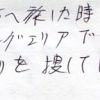 へ旅した時
グエリアで
りを捜して